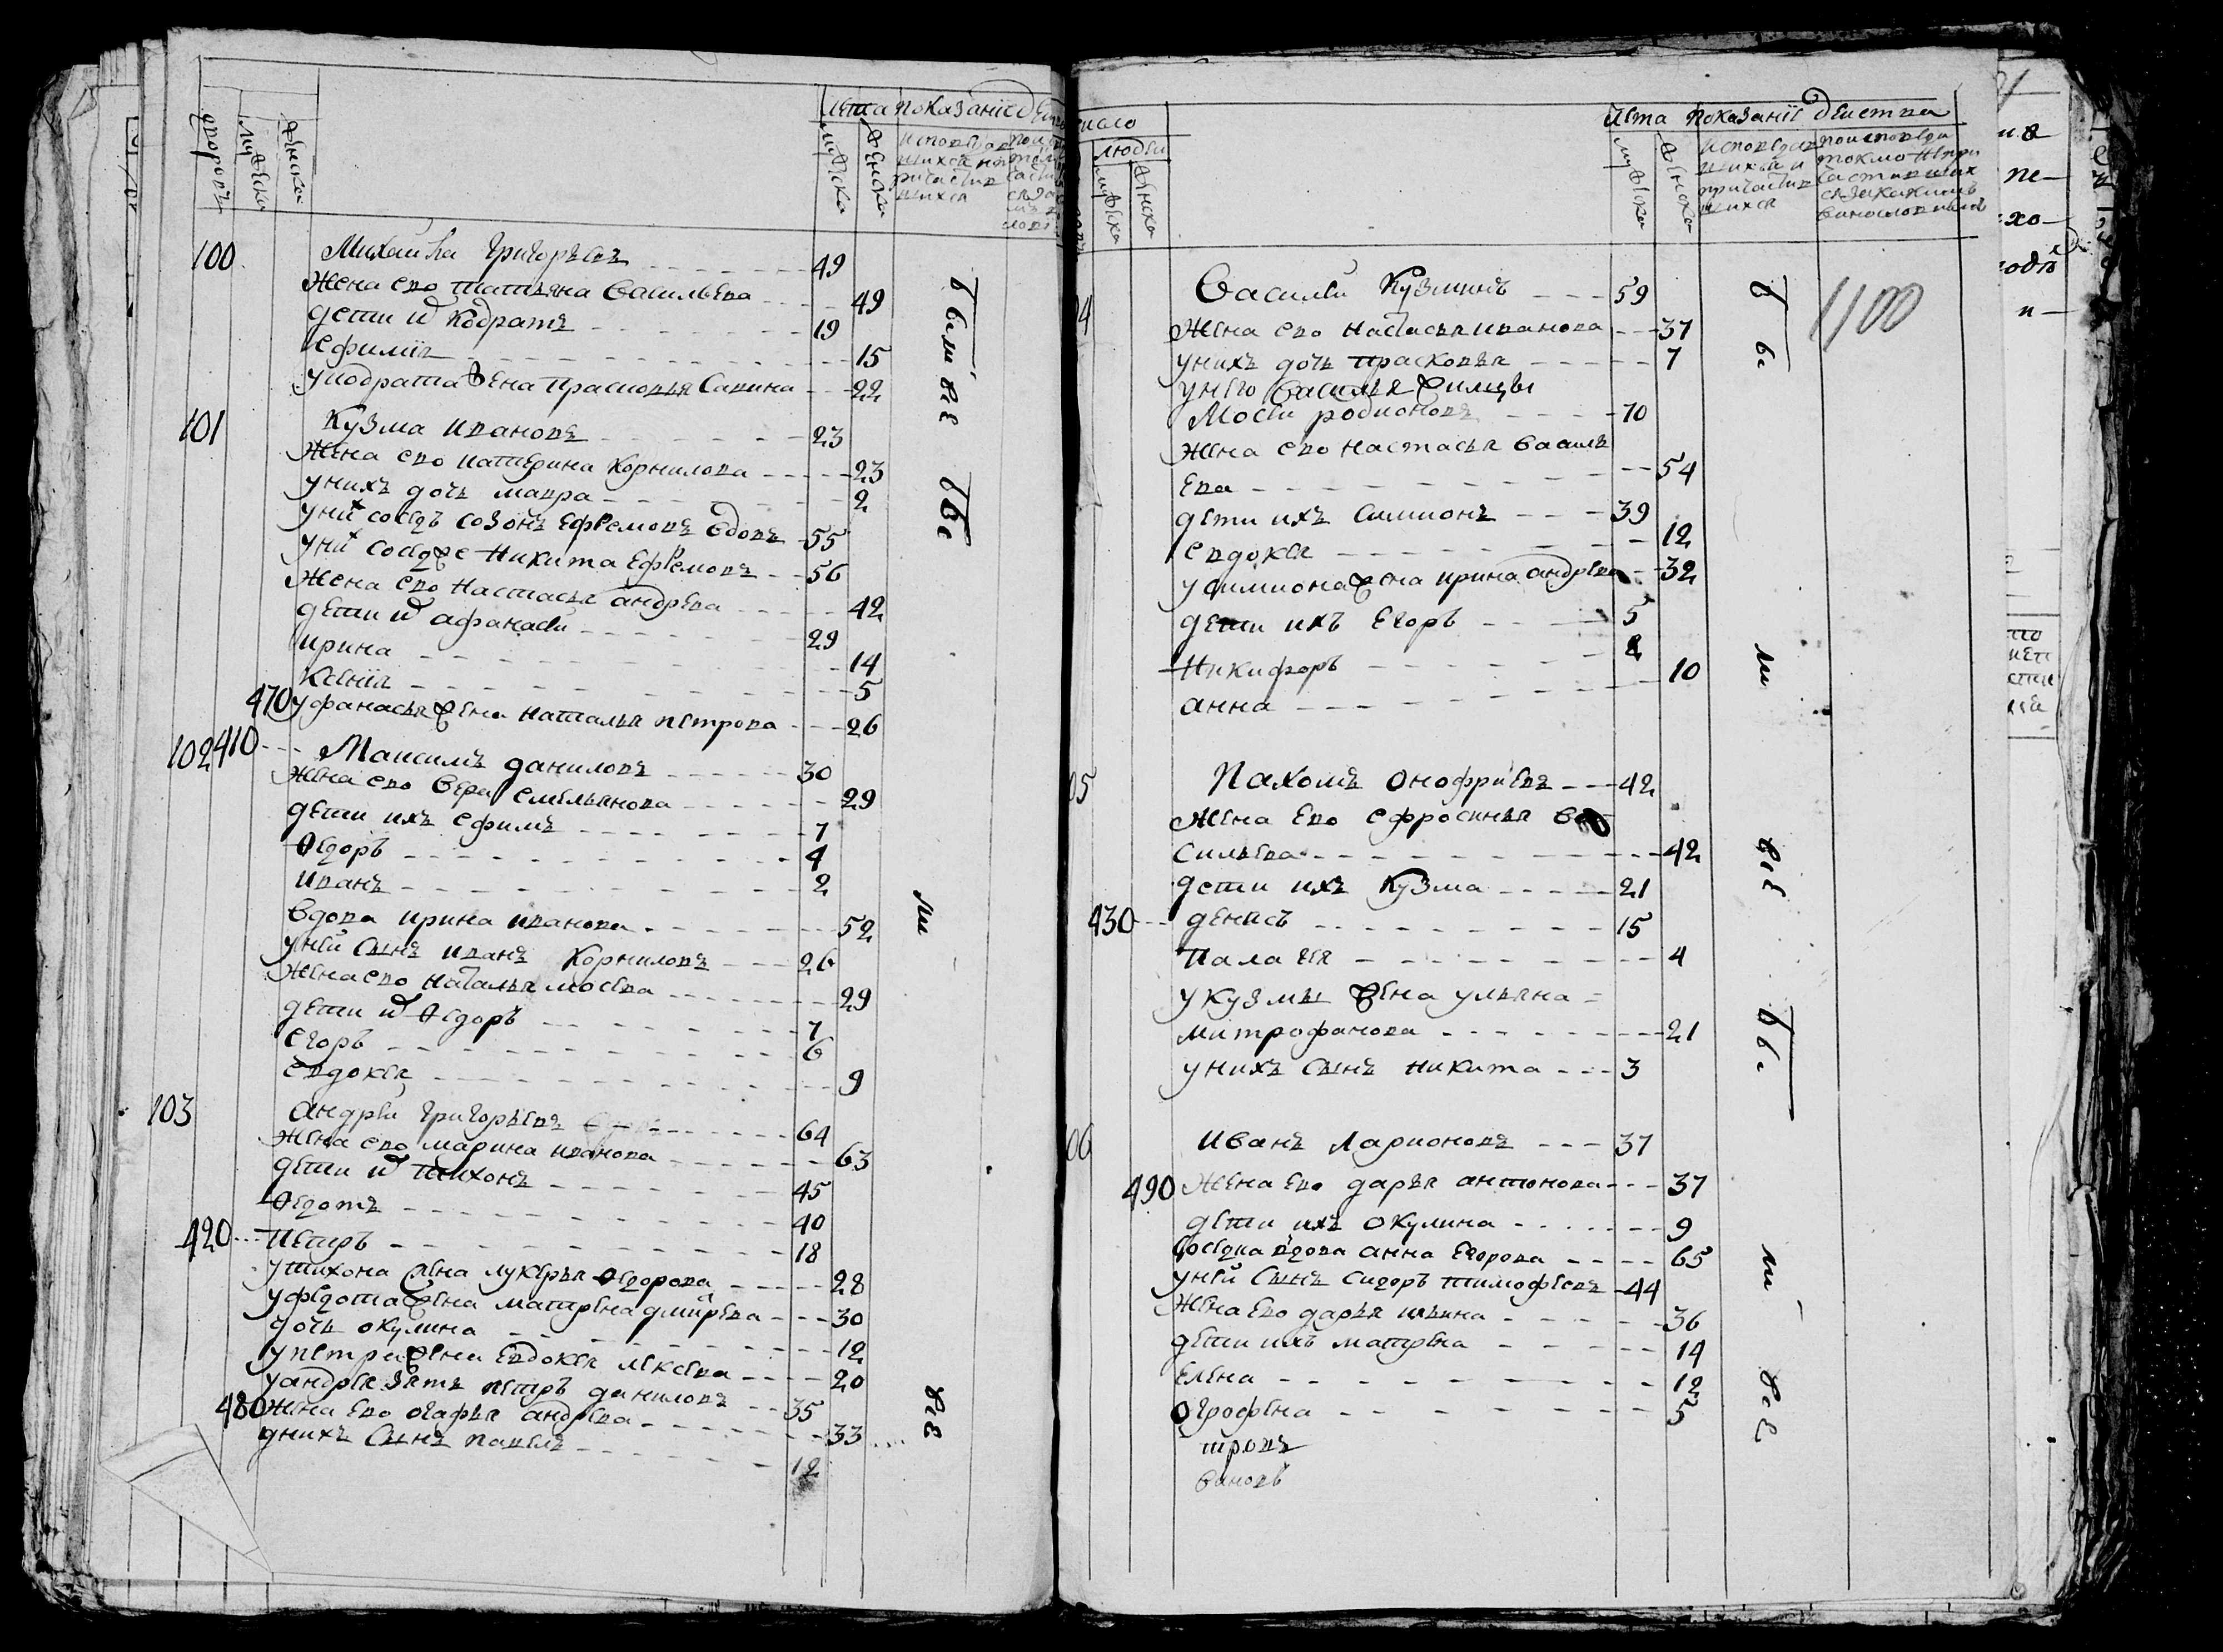 лета показаніе
дворовъ
мужеска
женска
мужеска
женска
100 Михаила Григорьевъ 49
Жена ево татьяна Васильева 49
дети их Кодратъ 19
Ефимия 15
у кодрата жена Прасковья Савина 22
101 Кузма ивановъ 23
Жена ево катерина Корнилова 23
у нихъ дочь мавра 2
у них соседъ Созонъ Ефремовъ вдовъ 55
у них соседже Никита Ефремовъ 56
Жена ево Настасья андрева 42
дети их афанасеи 29
ирина 14
Ксения 5
470 у фанасья жена наталья петрова 26
102 410 Максимъ даниловъ 30
Жена ево Вера Емельянова 29
дети ихъ Ефимъ 7
Ѳедоръ 4
иванъ 2
вдова ирина иванова 52
у ней сынъ иванъ Корниловъ 26
Жена ево наталья мосева 29
дети их Ѳедоръ 7
Егоръ 6
Евдокея 9
103 андреи григорьевъ 64
Жена ево марина иванова 63
дети их тихонъ 45
Ѳедотъ 40
420 Петръ 18
у тихона жена лукерья Ѳедорова 28
у федота жена матрена дмитрева 30
дочь окулина 12
у петра жена Евдокея лексева 20
у андрея зять петръ даниловъ 35
480 Жена ево огафья андрева 33
у нихъ сынъ павелъ 12
число
людей
мужеска
женска
лета показаніе деиства
мужеска
женска
1100
Василеи Кузминъ 59
Жена ево настасья иванова 37
у нихъ дочь прасковья 7
у него Василья
Мосеи родионовъ 70
Жена ево настасья василь
ева 54
дети ихъ симионъ 39
Евдокея 12
у симиона жена ирина андрева 32
дети ихъ Егоръ 5
Никифоръ 2
анна 10
05 Пахомъ онофриевъ 42
Жена ево ефросинья ва
сильева 42
дети ихъ Кузма 21
430 денисъ 15
Палагея 4
у кузмы жена ульяна
митрофанова 21
у нихъ сынъ никита 3
06 иванъ Ларионовъ 37
490 Жена ево дарья антонова 37
дети ихъ окулина 9
соседка вдова анна Егорова 65
у ней сынъ сидоръ тимофеевъ 44
Жена ево дарья ильина 36
дети ихъ матрена 14
Елена 12
огрофена 5